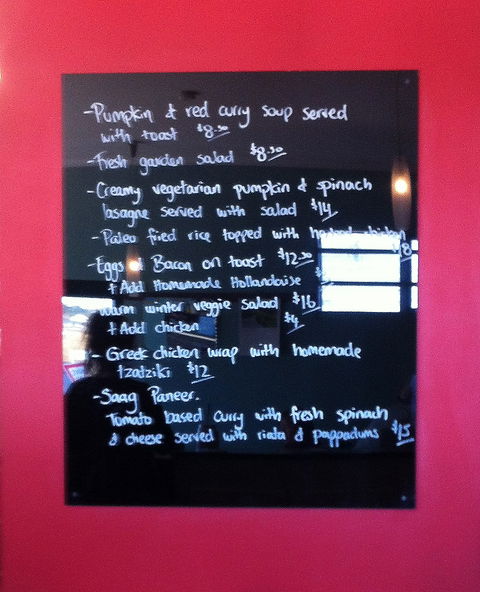 -Pumpkin & red curry soup served
with toast $8.50
-Fresh garden salad $8.50
-Creamy vegetarian pumpkin & spinach
lasagne served with salad $14
- Paleo fried rice topped with chicken
-Eggs & Bacon on toast $12.50
+ Add Homemade Hollandaise
Warm winter veggie salad $16
+ Add chicken $4
- Greek chicken wrap with homemade
tzatziki $12
-Saag Paneer.
Tomato based curry with fresh spinach
& cheese served with riata & pappadums $15